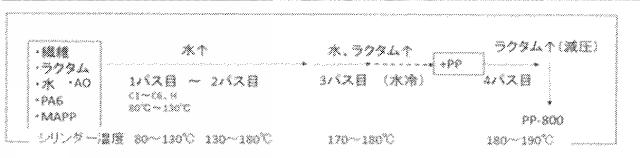 ・繊維
・ラクタム
・水 ・AO
・PA6
・MAPP
水↑
1パス目 ～ 2パス目
C1～C6、H
80℃～130℃
水、ラクタム↑
3パス目 (水冷)
+PP
ラクタム↑(減圧)
4パス目
PP-800
シリンダー温度 80～130℃ 130～180℃ 170～180℃ 180～190℃